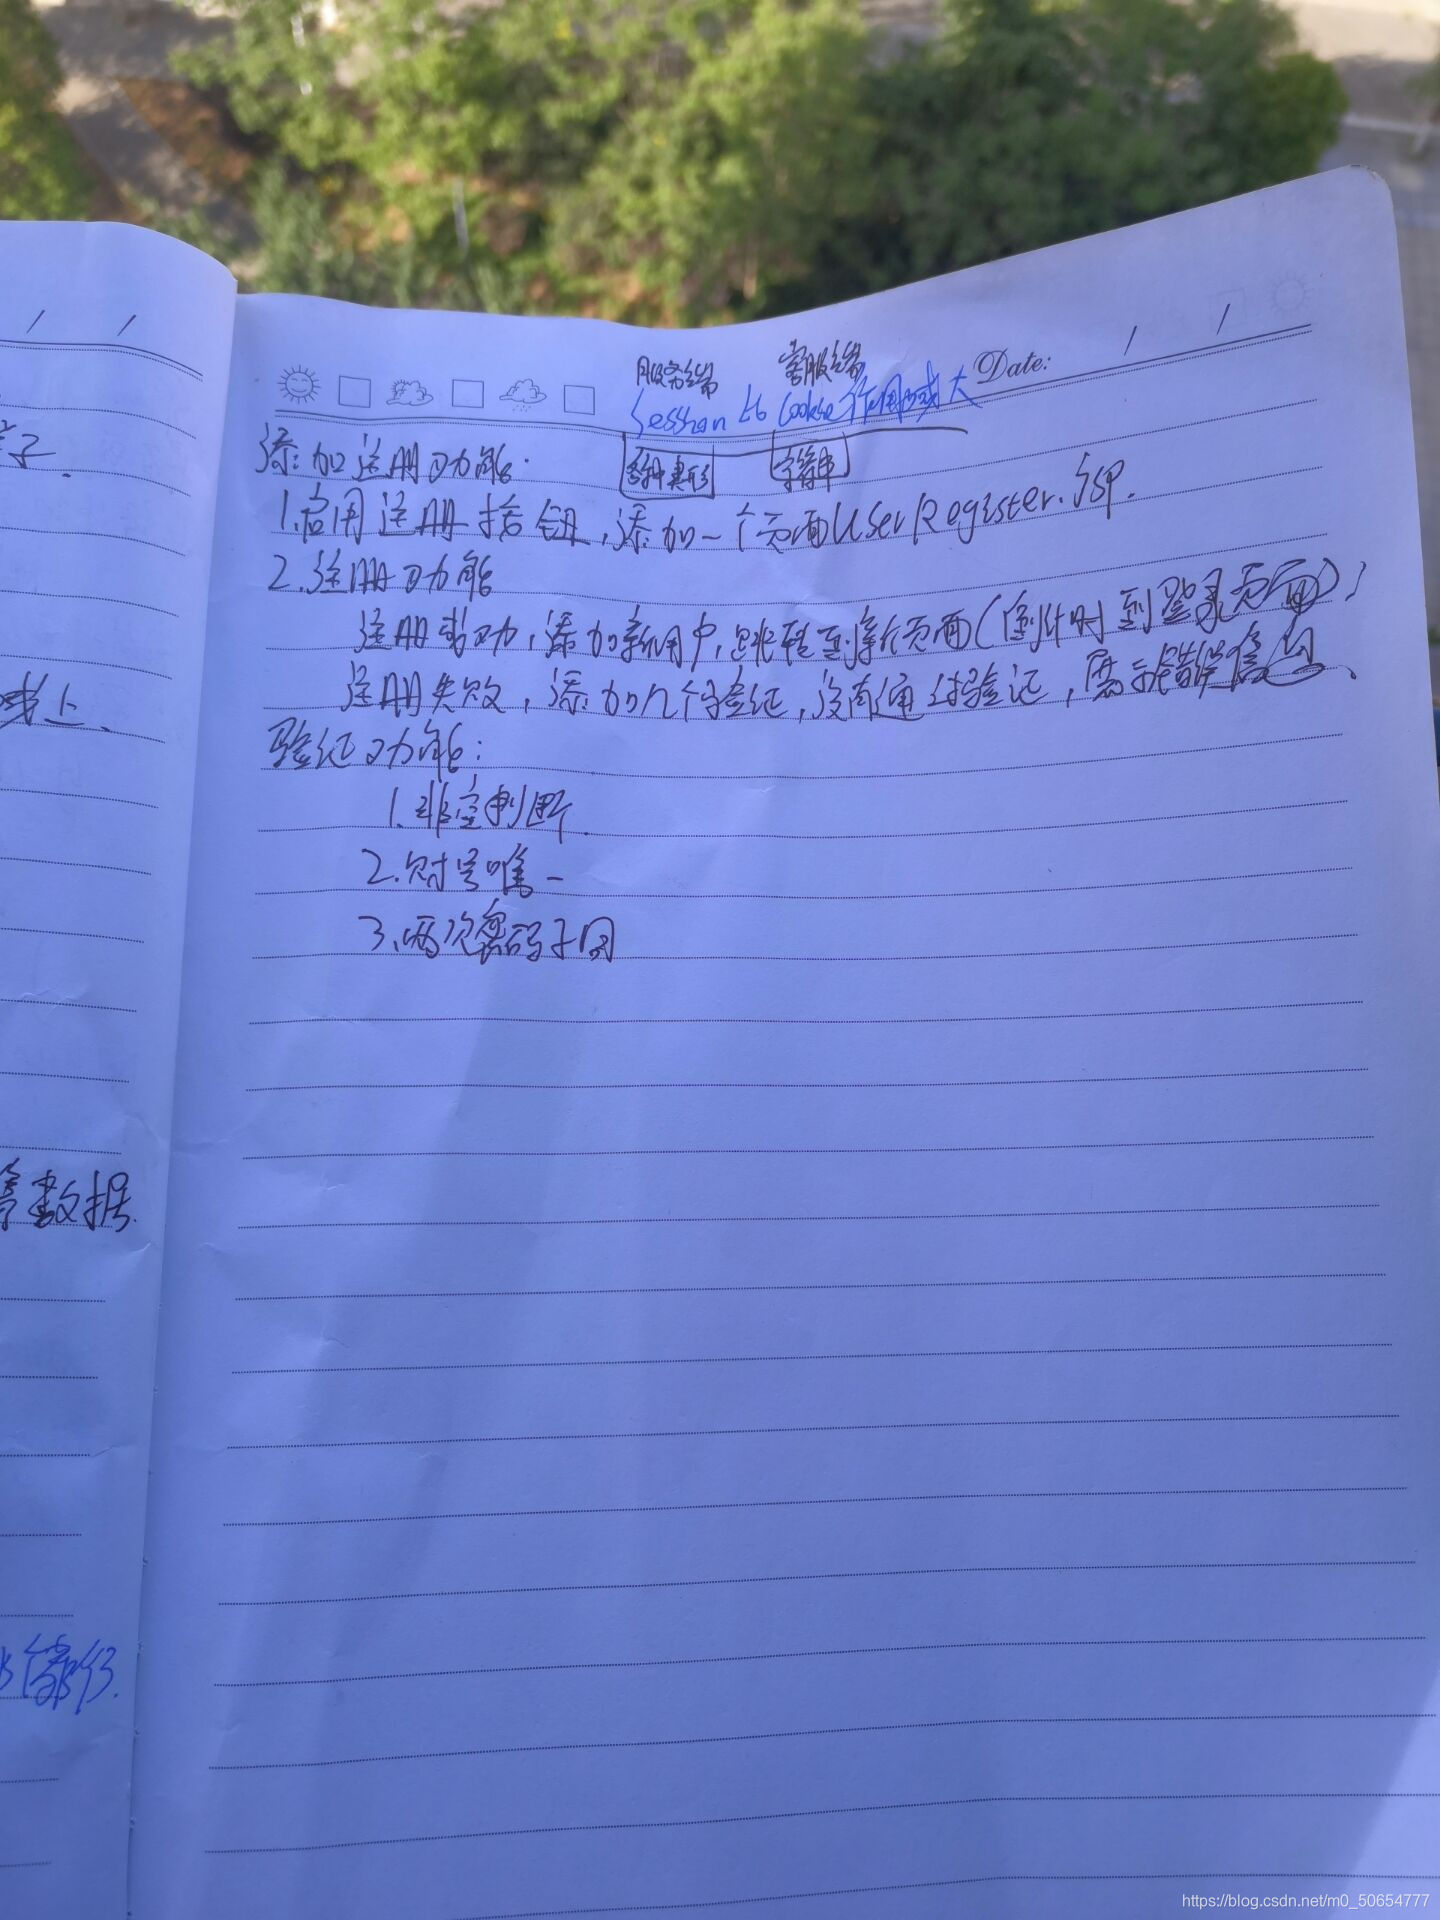 服务端 客服端
Date:
Session 比 Cookie 作用域大
各种类形 字符串
添加注册功能:
1.启用注册按钮,添加一个页面UserRegister.jsp.
2.注册功能
注册成功,添加新用户,跳转到新页面(倒计时到登录页面);
注册失败,添加几个验证,没有通过验证,展示错误信息、
验证功能:
1.非空判断.
2.账号唯一
3.两次密码不同
子.
上.
数据.
部份.
https://blog.csdn.net/m0_50654777